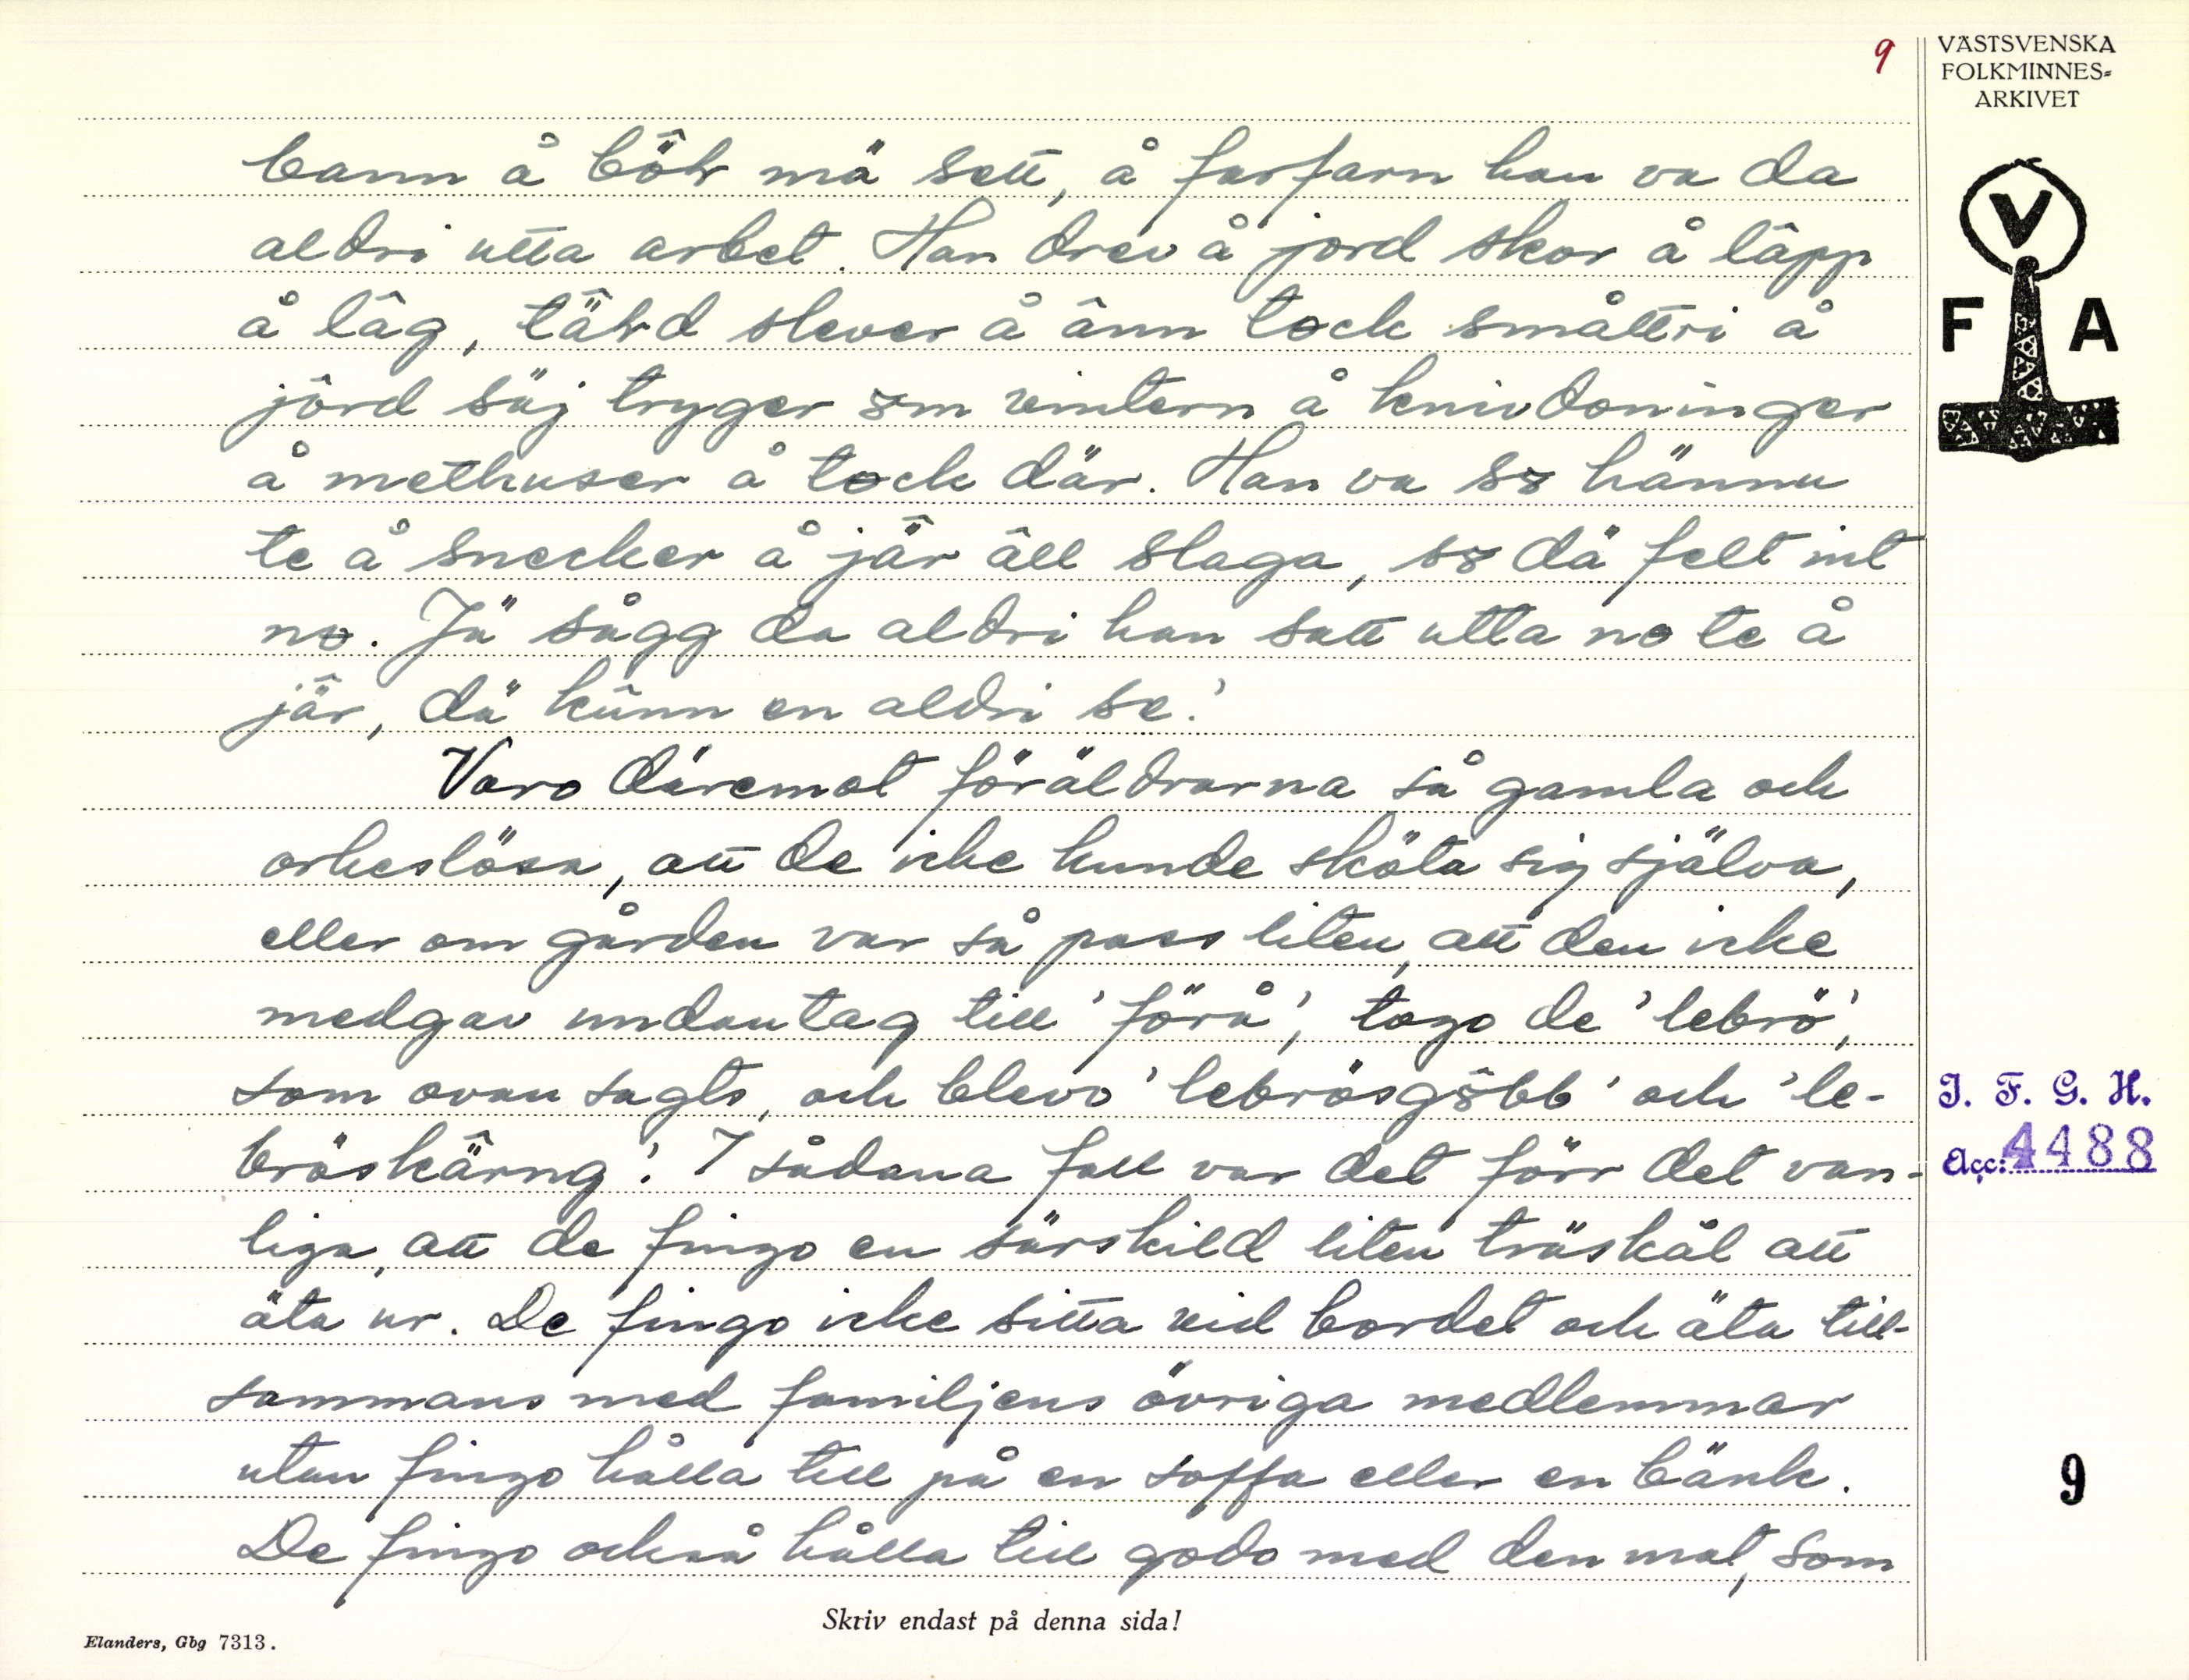 9
VÄSTSVENSKA
FOLKMINNES-
ARKIVET
V
F A
bann å böhr mä sett, å farfarn han va da
aldri utta arbet. Han drev å jord skor å läpp
å låg, tähd slever å ânn tock småttri å
jôrd säj tryger om vintern å knivdoninger
å methuser å tock där. Han va so hännu
te å snecker å jär âll slaga, so dä felt int
no. Jä sågg da aldri han satt utta no te å
jär, dä kûnn en aldri se.'
Voro däremot föräldrarna så gamla och
orkeslösa, att de icke kunde sköta sig själva,
eller om gården var så pass liten, att den icke
medgav undantag till 'förå', togo de 'lebrö',
som ovan sagts, och blevo 'lebrösgôbb' och 'le-
bröskärng'. I sådana fall var det förr det van-
liga, att de fingo en särskild liten träskål att
äta ur. De fingo icke sitta vid bordet och äta till-
sammans med familjens övriga medlemmar
utan fingo hålla till på en soffa eller en bänk.
De fingo också hålla till godo med den mat, som
I. F. G. H.
Acc: 4488
9
Skriv endast på denna sida!
Elanders, Gbg 7313.